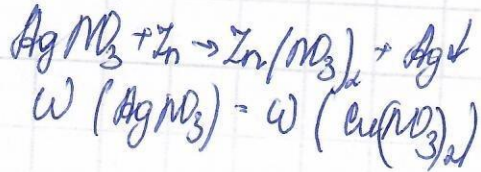 AgNO3 + Zn → Zn(NO3)2 + Ag↓
W (AgNO3) = W (Cu(NO3)2)